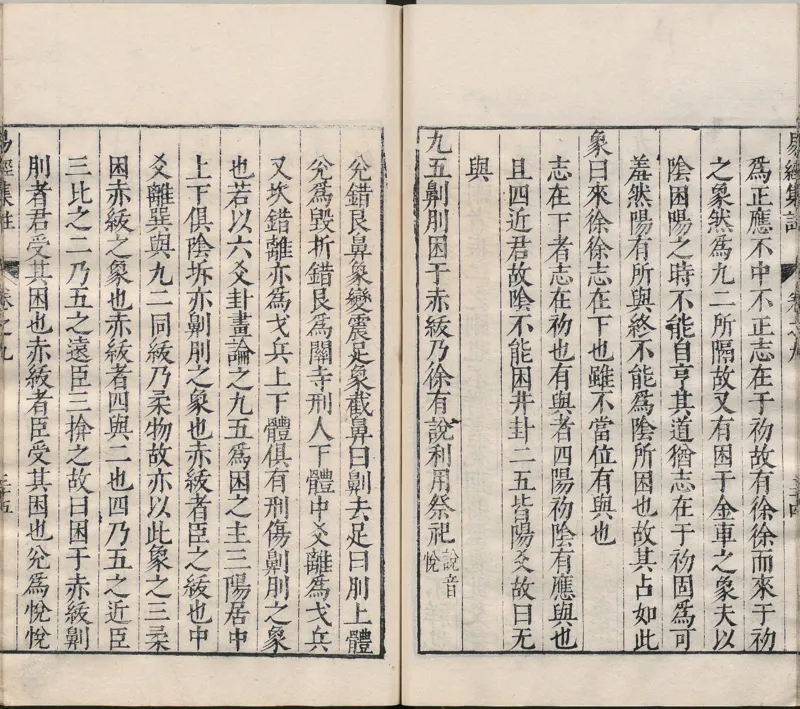 爲正應不中不正志在于初故有徐徐而來于初
之象然爲九二所隔故又有困于金車之象夫以
陰困陽之時不能自亨其道猶志在于初固爲可
羞然陽有所與終不能爲陰所困也故其占如此
象曰來徐徐志在下也雖不當位有與也
志在下者志在初也有與者四陽初陰有應與也
且四近君故陰不能困井卦二五皆陽爻故曰无
與
九五劓刖困于赤紱乃徐有說利用祭祀說音悅
兊錯艮鼻象變震足象截鼻曰劓去足曰刖上體
兊爲毀折錯艮爲閽寺刑人下體中爻離爲戈兵
又坎錯離亦爲戈兵上下體俱有刑傷劓刖之象
也若以六爻卦畫論之九五爲困之主三陽居中
上下俱陰坼亦劓刖之象也赤紱者臣之紱也中
爻離巽與九二同紱乃柔物故亦以此象之三柔
困赤紱之象也赤紱者四與二也四乃五之近臣
三比之二乃五之遠臣三揜之故曰困于赤紱劓
刖者君受其困也赤紱者臣受其困也兊爲悅悅
易經集註
卷之九